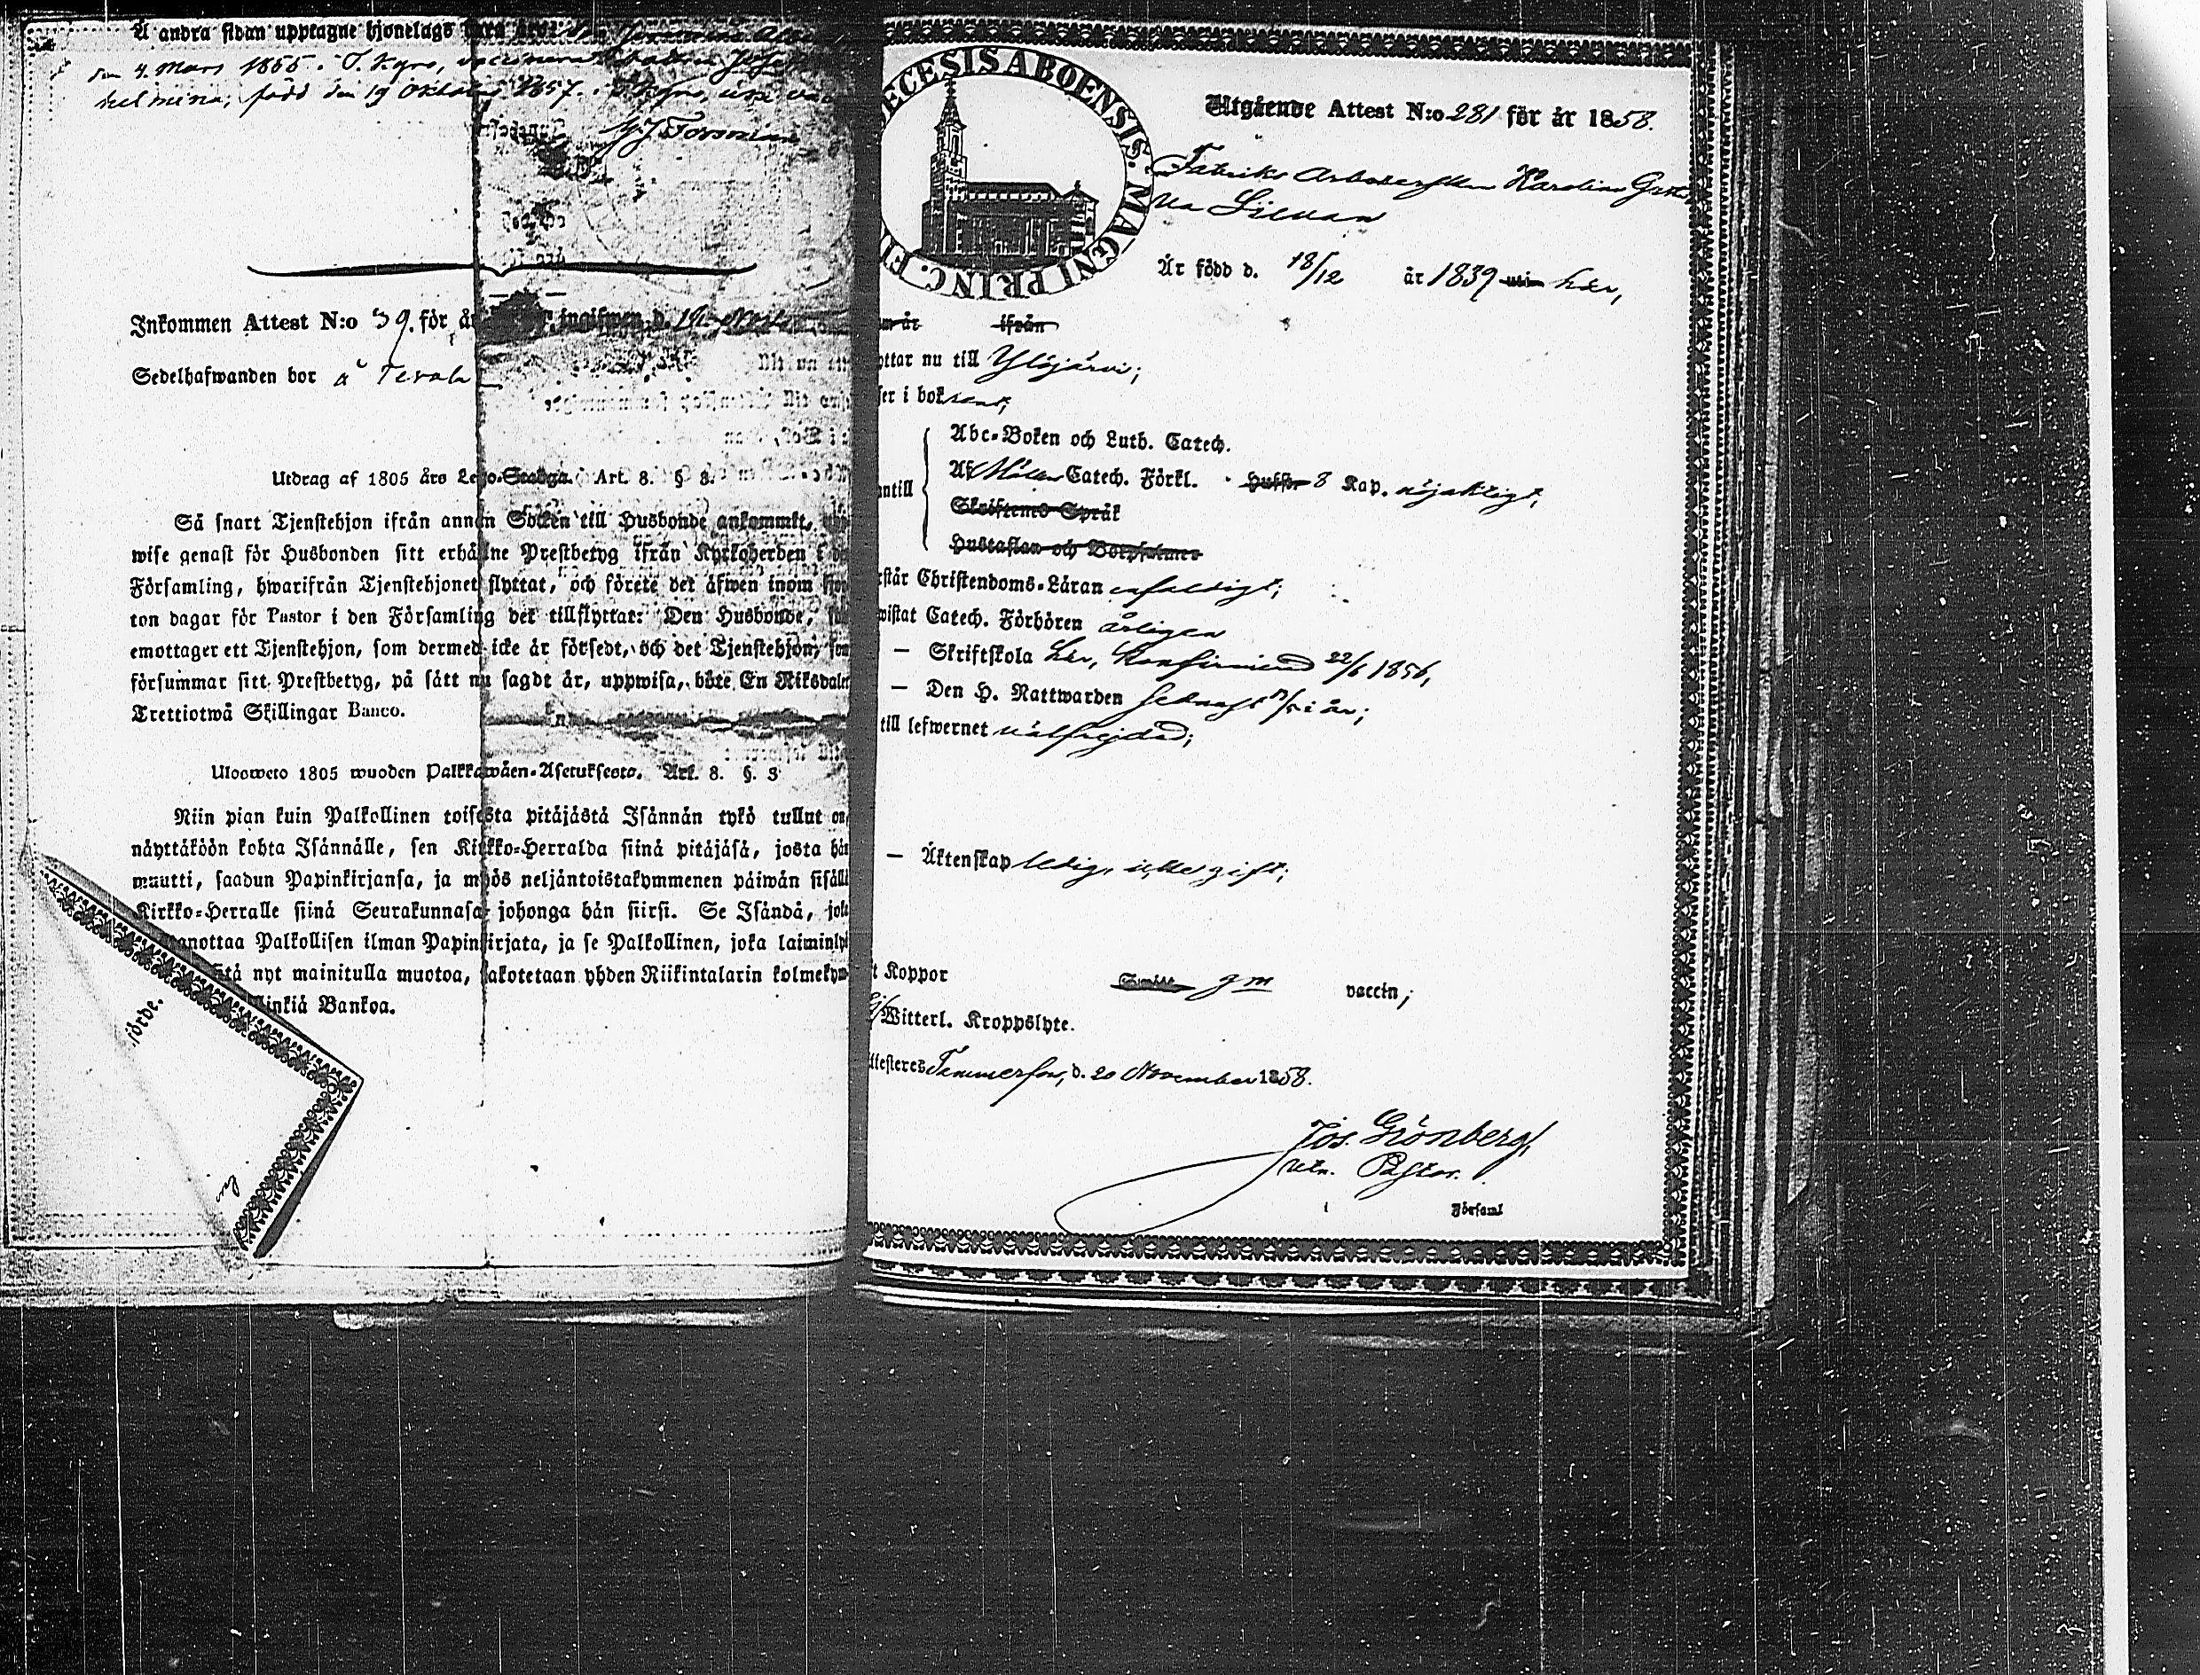 Å andra sidan upptagne hjonelags
den 4 Mars 1855. T. Kyro,
helmina, född den 19 Oktober 1857.
G. J. Forsman
Inkommen Attest N:o 39. för år
Sedelhafwanden bor å
Utdrag af 1805 års Lego-Stadga. Art. 8. § 3.
Så snart Tjenstehjon ifrån annan Socken till Husbonde ankommit,
wise genast för Husbonden sitt erhållne Prestbetyg ifrån Kyrkoherden i
Församling, hwarifrån Tjenstehjonet flyttat, och förete det äfwen inom
ton dagar för Pastor i den Församling det tillflyttar: Den Husbonde,
emottager ett Tjenstehjon, som dermed icke är försedt, och det Tjenstehjon, som
försummar sitt Prestbetyg, på sätt nu sagdt är, uppwisa, böte En Riksdaler
Trettiotwå Skillingar Banco.
Ulosweto 1805 wuoden Palkkawäen-Asetuksesta. Art. 8. §. 3
Niin pian kuin Palkollinen toisesta pitäjästä Isännän tykö tullut on,
näyttäköön kohta Isännälle, sen Kirkko-Herralda siinä pitäjäsä, josta hän
muutti, saadun Papinkirjansa, ja myös neljäntoistakymmenen päiwän sisällä
Kirkko-Herralle siinä Seurakunnasa johonga hän siirsi. Se Isändä, joka
anottaa Palkollisen ilman Papinkirjata, ja se Palkollinen, joka laiminlyö
stä nyt mainitulla muotoa, sakotetaan yhden Riikintalarin kolmekym-
linkiä Bankoa.
ECESIS ABOENSIS. MAGNI PRINC. FI
Utgående Attest N:o 281 för år 1858.
Fabriks Arbeterskan Karolina Gust
va Silvan
Är född d. 18/12 år 1839 uti här,
år ifrån
ottar nu till Ylöjärvi;
ser i bok
Abc-Boken och Luth. Catech.
Af Möllers Catech. Förkl. Hufst 8 Kap. nöjaktigt,
ntill
Skriftenes Språk
Hustaflan och Botpsalmer
rstår Christendoms-Läran enfaldigt;
wistat Catech. Förhören årligen
— Skriftskola här, Konfirmerad 22/6 1856,
— Den H. Nattwarden senast
till lefwernet välfrejdad;
— Äktenskap ledig,
t Koppor Smitt gm vaccin;
Witterl. Kroppslyte.
ttesteres Tammerfors, d. 20 November 1858.
Jos. Grönberg,
Pastor.
Församl